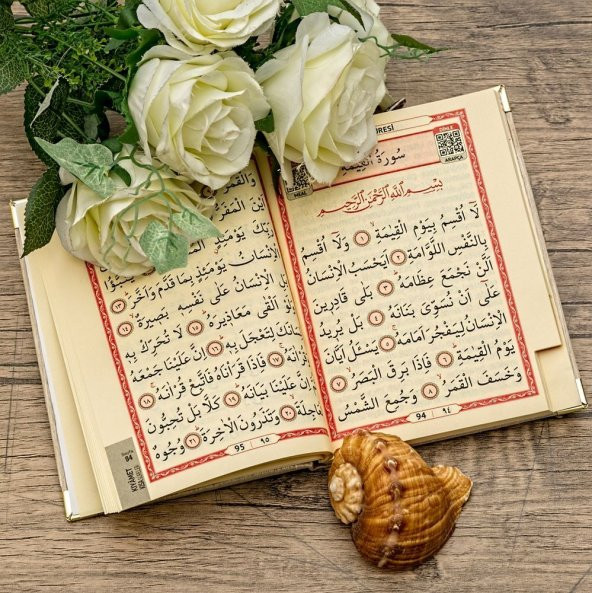 سُورَةُ الْقِيٰمَةِ
ARAPÇA
MEAL
بِسْمِ اللّٰهِ الرَّحْمٰنِ الرَّحِيمِ
لَا اُقْسِمُ بِيَوْمِ الْقِيٰمَةِ ١ وَلَا اُقْسِمُ
بِالنَّفْسِ اللَّوَّامَةِ ٢ اَيَحْسَبُ الْاِنْسَانُ
اَلَّنْ نَجْمَعَ عِظَامَهُ ٣ بَلٰى قَادِرِينَ
عَلٰى اَنْ نُسَوِّيَ بَنَانَهُ ٤ بَلْ يُرِيدُ
الْاِنْسَانُ لِيَفْجُرَ اَمَامَهُ ٥ يَسْـَٔلُ اَيَّانَ
يَوْمُ الْقِيٰمَةِ ٦ فَاِذَا بَرِقَ الْبَصَرُ ٧
وَخَسَفَ الْقَمَرُ ٨ وَجُمِعَ الشَّمْسُ
94 ٩٤
وَالْقَمَرُ
الْمَفَرُّ
يَوْمَئِذٍ
الْاِنْسَانُ يَوْمَئِذٍ بِمَا قَدَّمَ وَاَخَّرَ
١٣ الْاِنْسَانُ عَلٰى نَفْسِهِ بَصِيرَةٌ
١٤ اَلْقٰى مَعَاذِيرَهُ ١٥ لَا تُحَرِّكْ بِهِ
لِسَانَكَ لِتَعْجَلَ بِهِ ١٦ اِنَّ عَلَيْنَا جَمْعَهُ
وَقُرْاٰنَهُ ١٧ فَاِذَا قَرَاْنَاهُ فَاتَّبِعْ قُرْاٰنَهُ ١٨
اِنَّ عَلَيْنَا بَيَانَهُ ١٩ كَلَّا بَلْ تُحِبُّونَ
الْعَاجِلَةَ ٢٠ وَتَذَرُونَ الْاٰخِرَةَ ٢١ وُجُوهٌ
95 ٩٥
KIYÂMET
94